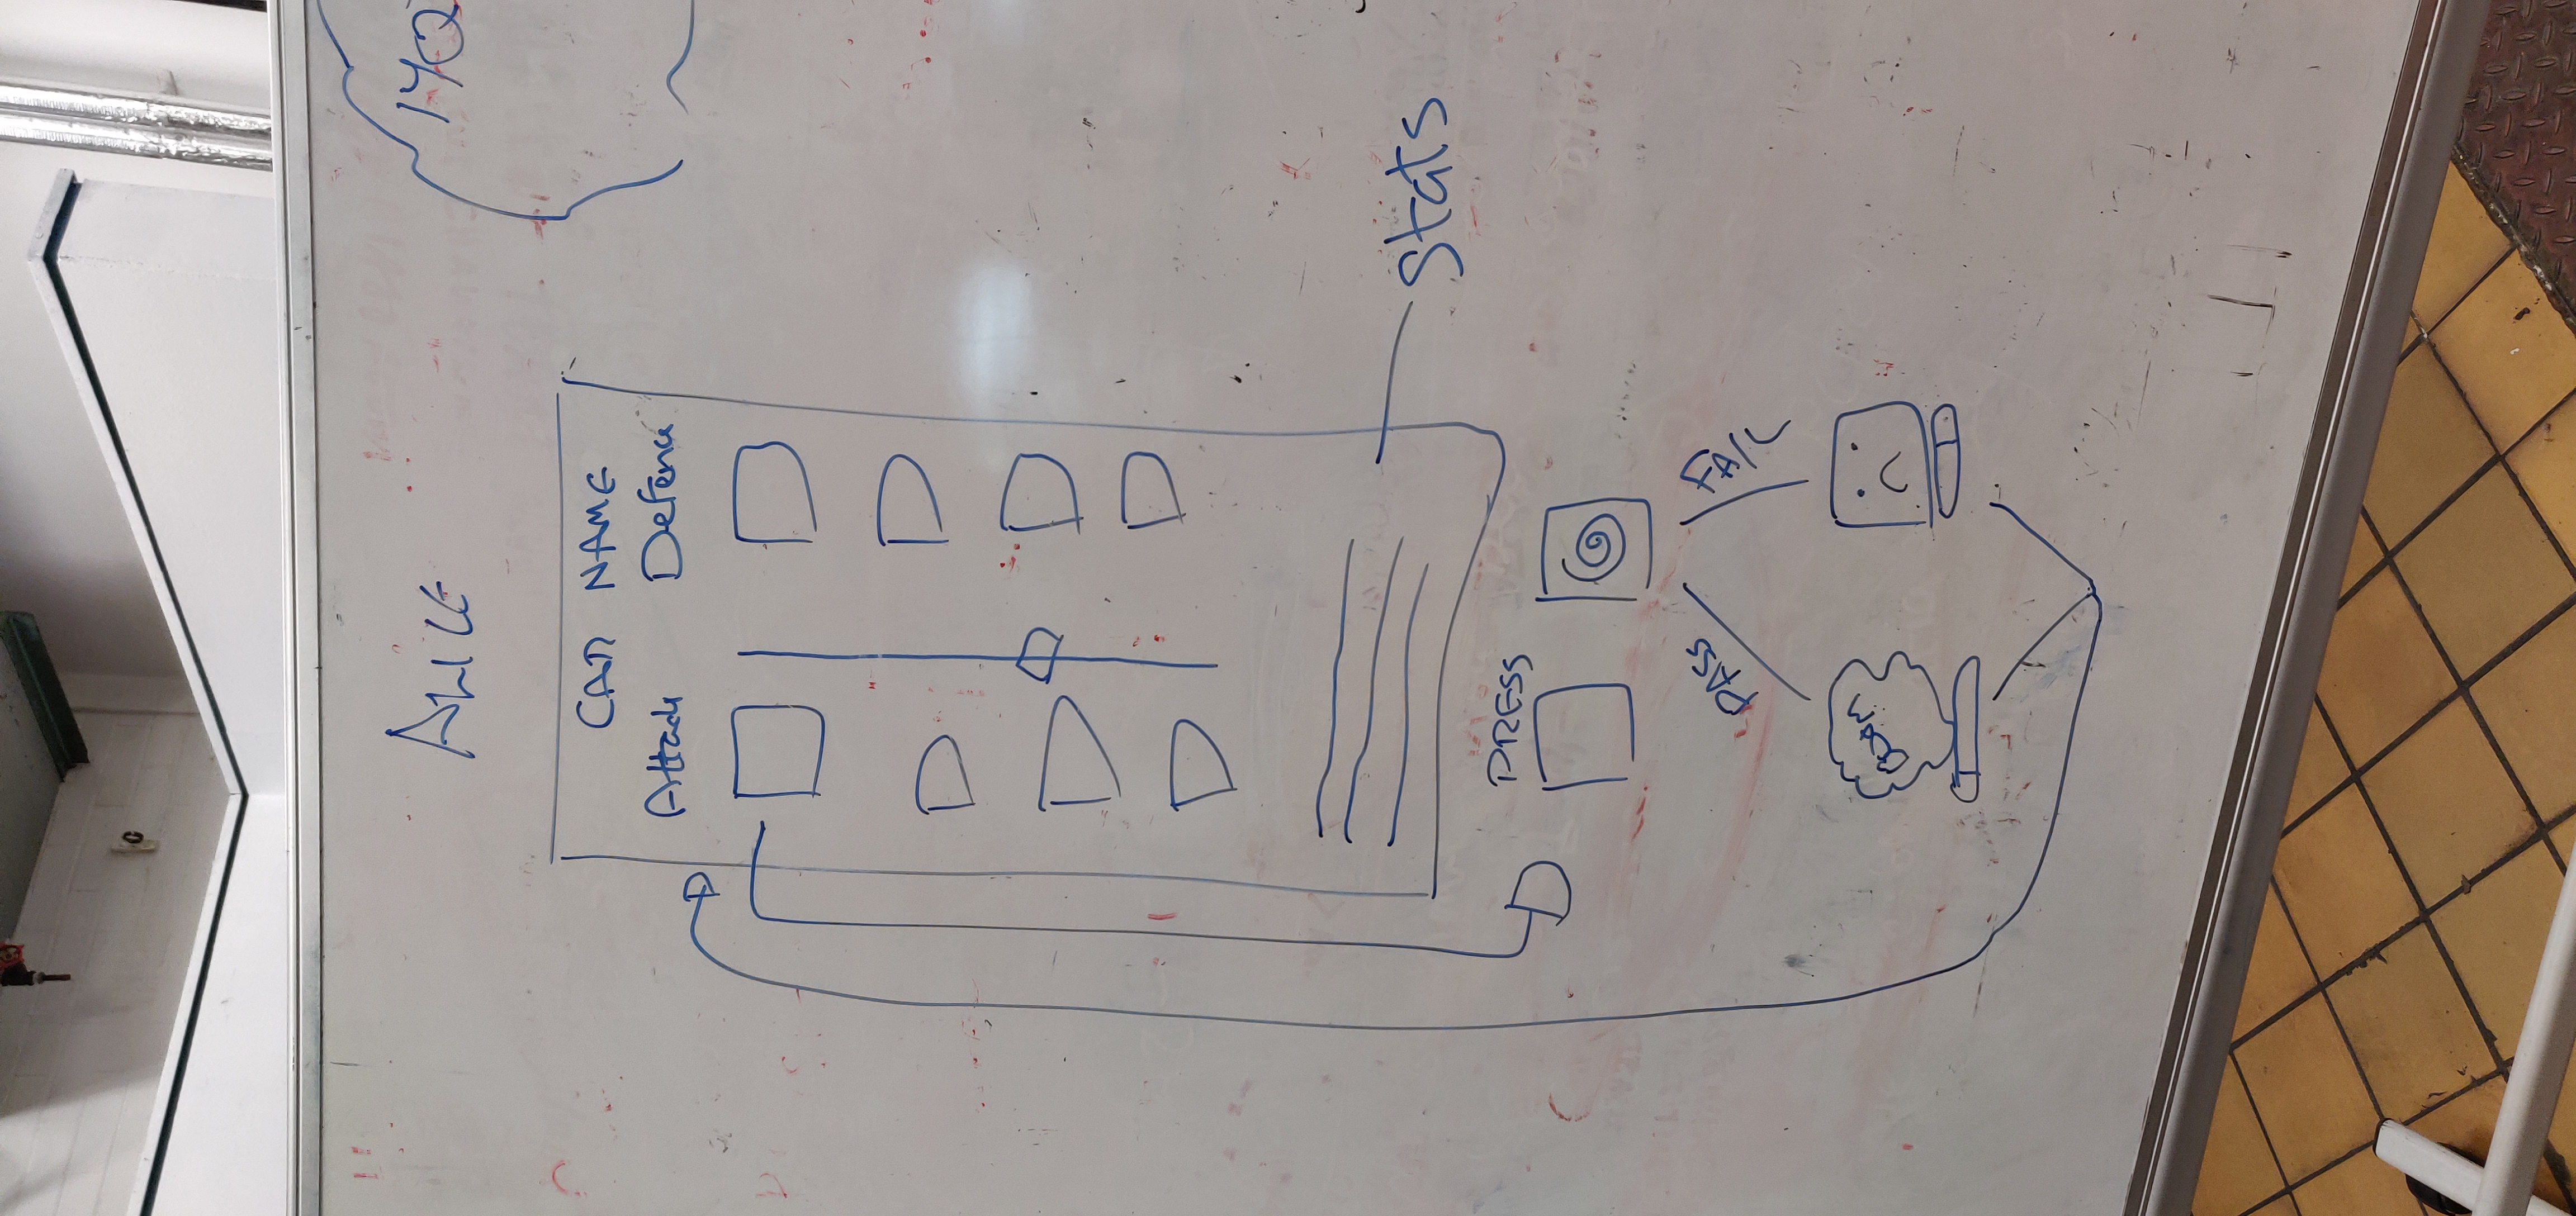 ALICE
CAR NAME
Attack Defence
Stats
PRESS
PASS
FAIL
BOOM